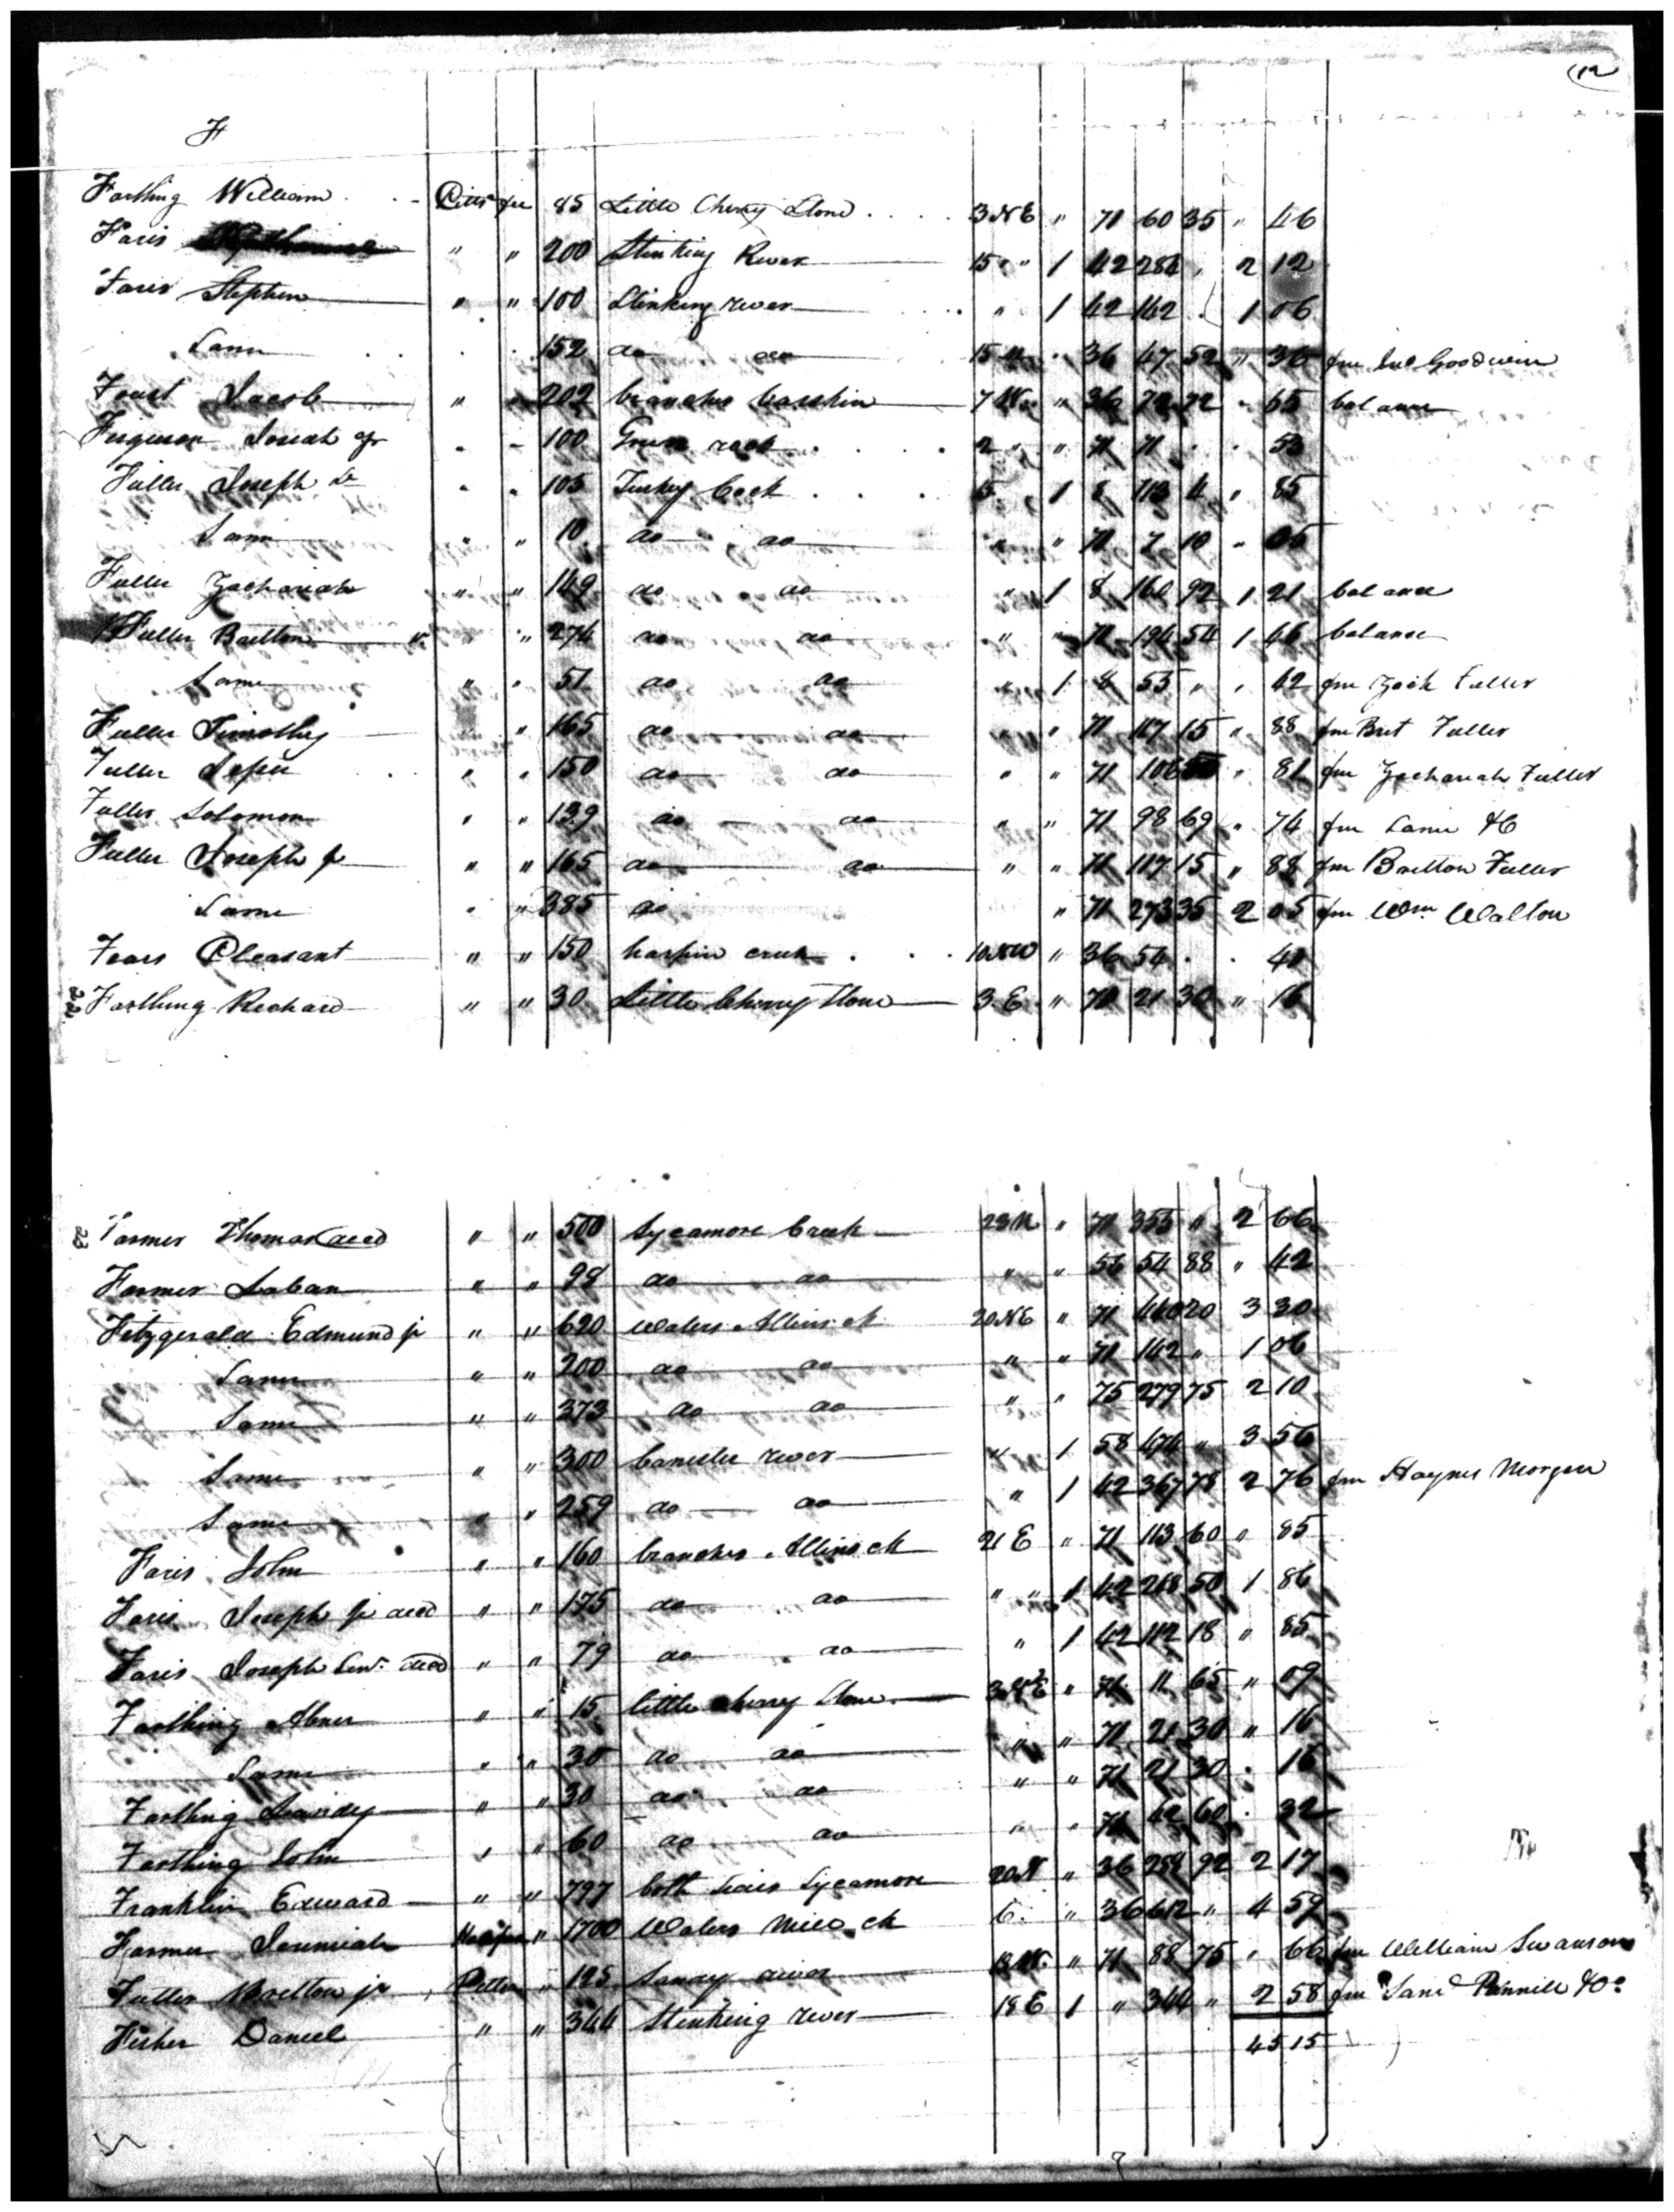 (12
F
Farthing William . . - Pitts fee 85 Little Cherry Stone . . . . 3 NE " 71 60 35 " 46
Faris " " 200 Stinking River 15 " " 1 42 284 " 2 12
Faris Stephen " " 100 Stinking river . . " 1 42 142 . 1 06
Same . . . . 152 do do 15 N . 36 47 52 " 36 fm Jno Goodwin
Foust Jacob " " 202 branches harskin 7 W " " 36 72 72 " 65 balance
Ferguson Josiah jr " - 100 Green rock . . . . 2 " " 71 71 . . 53
Fuller Joseph Sr " " 105 Turkey Cock . . . 15 1 8 113 4 " 85
Same " " 10 do do " " 71 7 10 " 05
Fuller Zachariah " " 149 do do " 1 8 160 92 1 21 balance
Fuller Britton " " 274 do do " " 71 194 54 1 46 balance
Same " " 51 do do " 1 8 55 " " 42 fm Zach Fuller
Fuller Timothy " 165 do do " " 71 117 15 " 88 fm Brit Fuller
Fuller . . " " 150 do do " " 71 106 " 81 fm Zachariah Fuller
Fuller Solomon " " 139 do do " " 71 98 69 " 74 fm Same &C
Fuller Joseph jr " " 165 do do " " 71 117 15 " 88 fm Britton Fuller
Same " " 385 do " 71 273 35 2 05 fm Wm Walton
Fears Pleasant " " 150 harpin creek . . . 10 NW " 36 54 . . 41
22 Farthing Richard " " 30 Little Cherry Stone 3 E " 71 21 30 " 16
23 Farmer Thomas decd " " 500 Sycamore Creek 23 N " 71 355 " 2 66
Farmer Laban " " 98 do do " " 56 54 88 " 42
Fitzgerald Edmund jr " " 620 waters Allins ck 20 NE " 71 440 20 3 30
Same " " 200 do do " " 71 142 " 1 06
Same " " 373 do do " " 75 279 75 2 10
Same " " 300 banister river " 1 58 474 " 3 56
Same " " 259 do do " 1 42 367 78 2 76 fm Haynes Morgan
Faris John " " 160 branches Allins ck 21 E " 71 113 60 " 85
Faris Joseph jr decd " " 175 do do " " 1 42 248 50 1 86
Faris Joseph Senr. decd " " 79 do do " 1 42 112 18 " 85
Farthing Abner " " 15 little cherry Stone 3 NE " 71 11 65 " 09
Same " " 30 do do " " 71 21 30 " 16
Farthing " " 30 do do " " 71 21 30 . 16
Farthing John " " 60 do do " " 71 42 60 . 32
Franklin Edward " " 797 both sides Sycamore 20 N " 36 284 92 2 17
Farmer Jeremiah " 1700 Waters Mill ck 6 . " 36 612 " 4 59
Fuller Britton jr , Pitts " 125 Sandy river 13 W. " 71 88 75 " 66 fm William Swanson
Fisher Daniel " " 344 Stinking river 18 E 1 " 344 " 2 58 fm Saml Pannill &Co
45 15